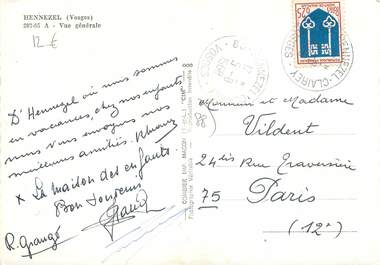 HENNEZEL (Vosges)
202-05 A - Vue générale
12 €
D'Hennezel où nous sommes
en vacances, chez nos enfants
nous vous envoyons nos
meilleures amitiés.
x La maison des enfants.
Bon Souvenir
R. Grangé
COMBIER IMP. MACON
Monsieur et Madame
Vildent
24 bis Rue Traversière
75 Paris
(12e)